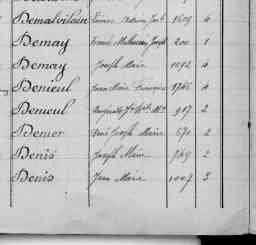 Demalvilain 1609 4
Demay Francis Mathurin Joseph 200 1
Demay Joseph Marie 1092 4
Denieul Jean Marie François 1746 4
Denieul 917 2
Denier René Joseph Marie 570 2
Denis Joseph Marie 749 2
Denis Jean Marie 1007 3